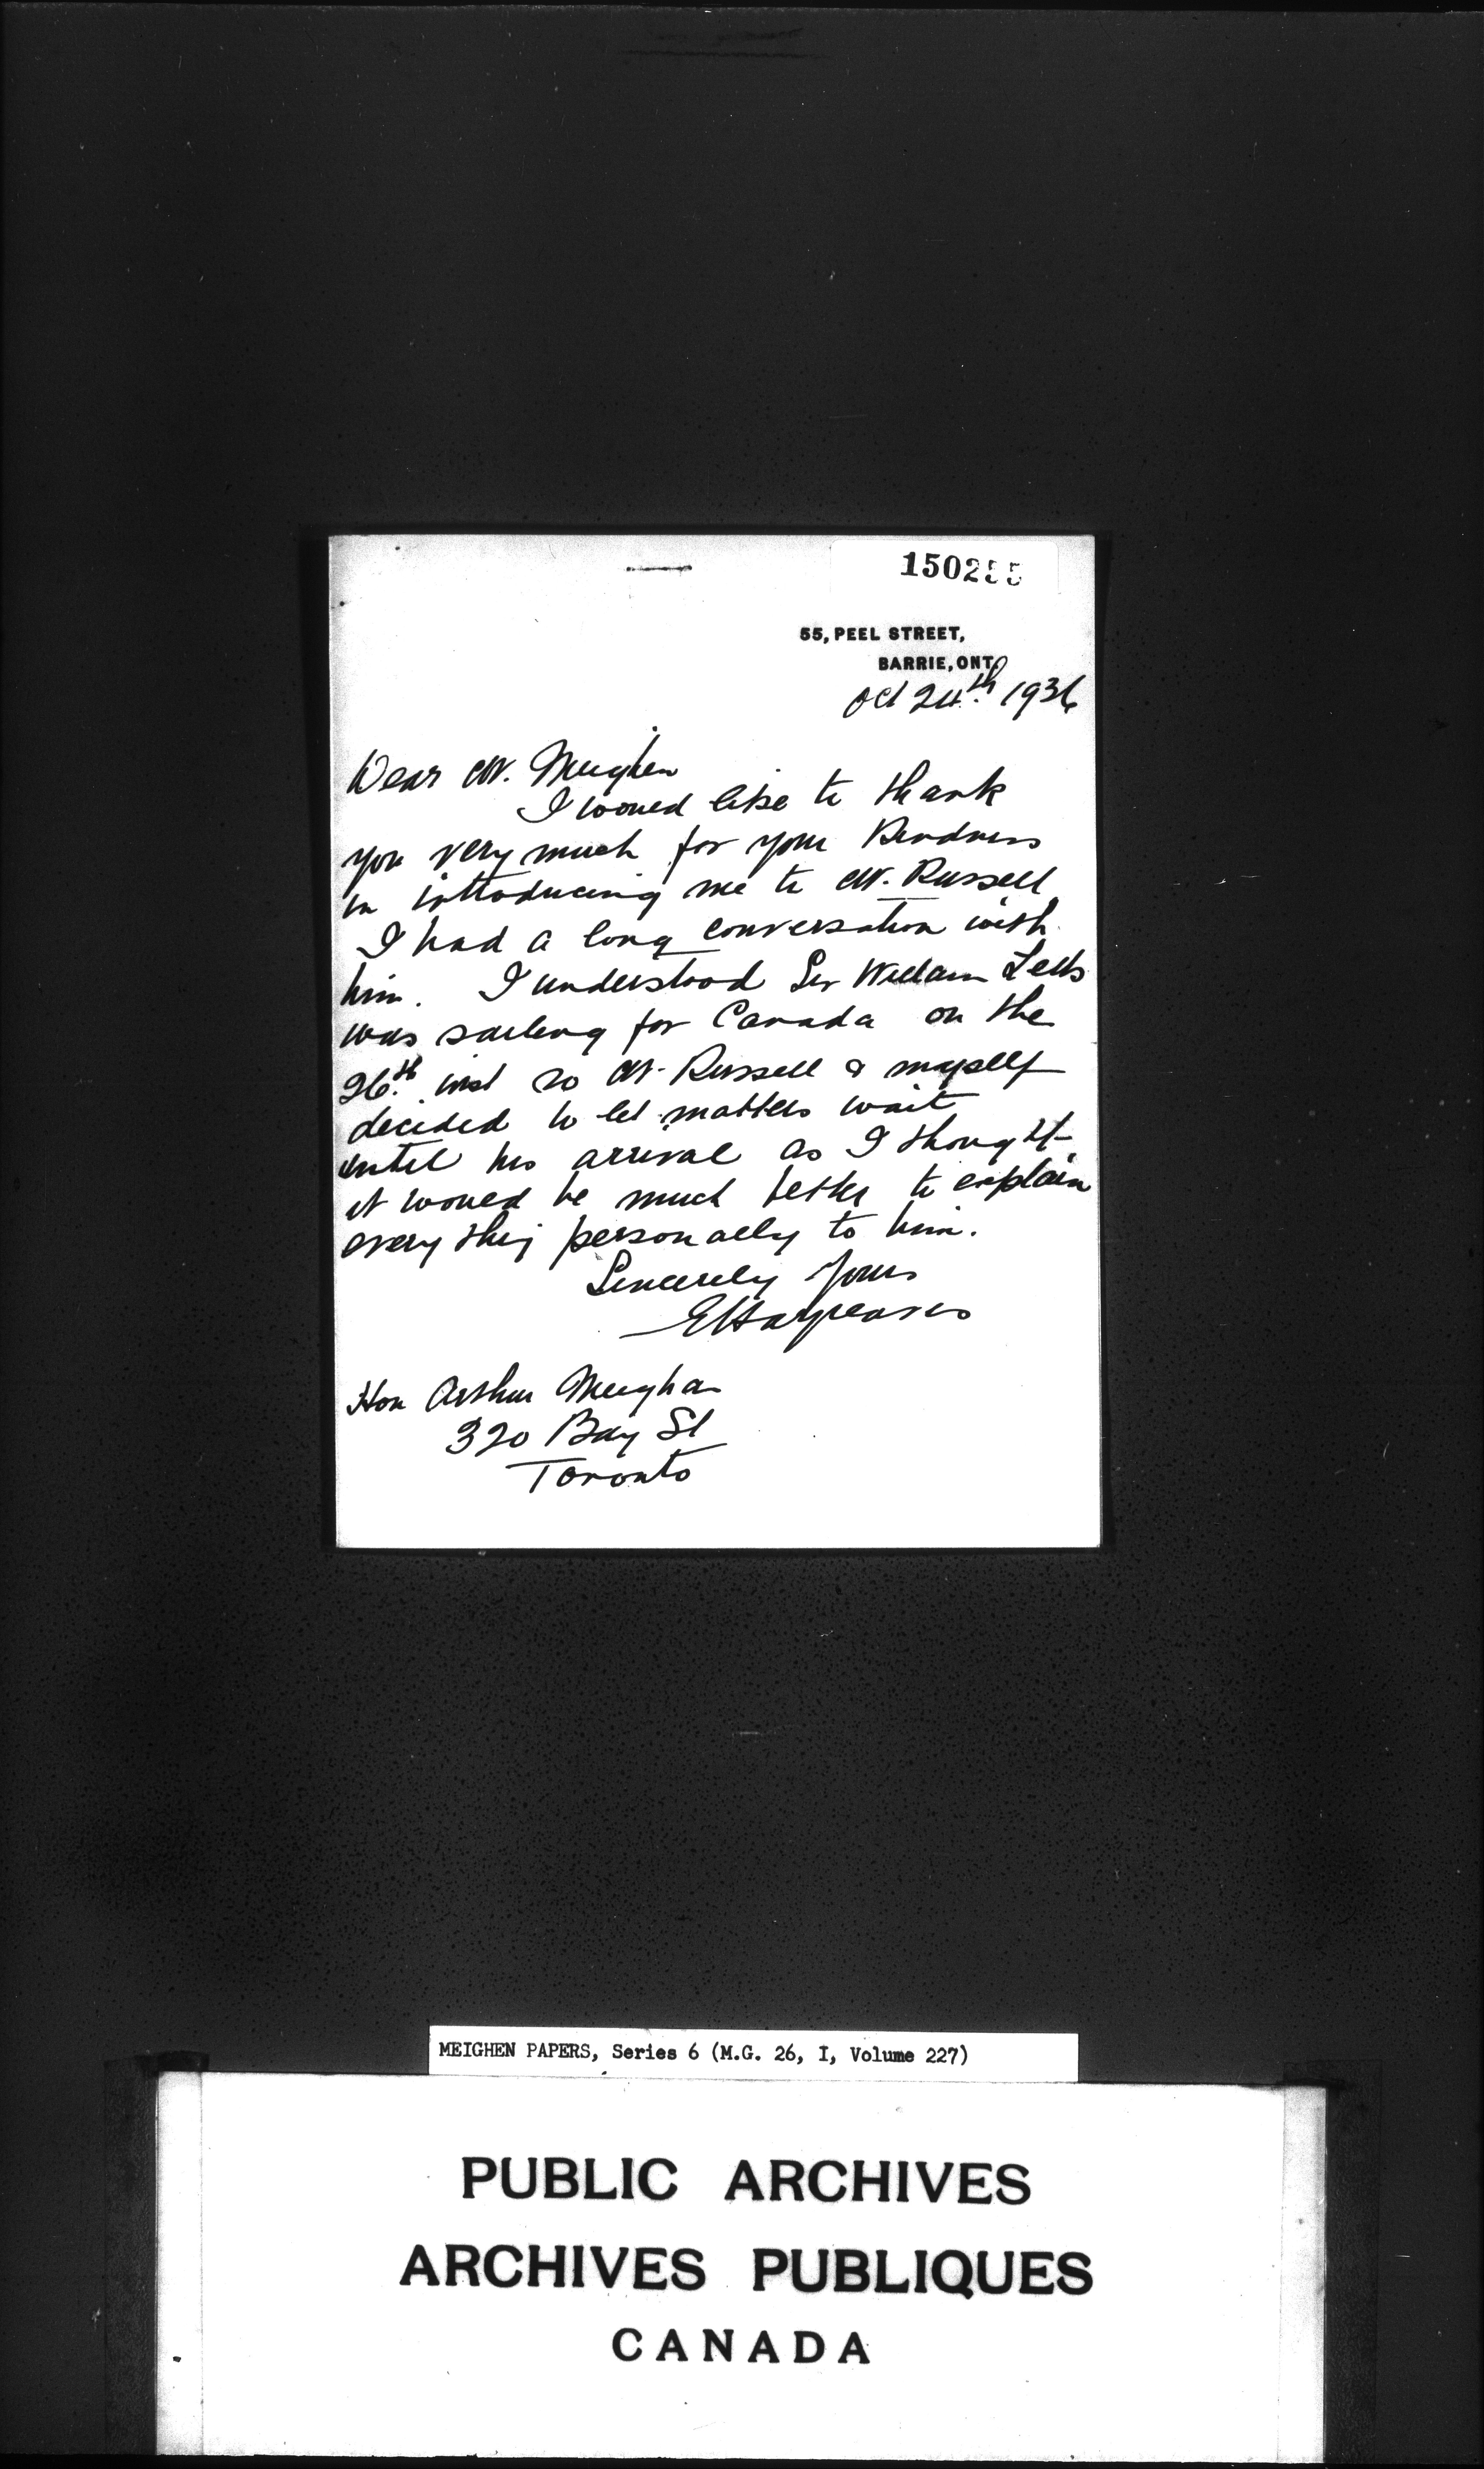 150255
55, PEEL STREET,
BARRIE, ONT.
Oct 24th. 1936
Dear Mr. Meighen
I would like to thank
you very much for your kindness
in introducing me to Mr. Russell
I had a long conversation with
him. I understood Sir William Letts
was sailing for Canada on the
26th. inst so Mr. Russell & myself
decided to let matters wait
until his arrival as I thought
it would be much better to explain
every thing personally to him.
Sincerely Yours
EHargreaves
Hon Arthur Meighan
320 Bay St
Toronto
MEIGHEN PAPERS, Series 6 (M.G. 26, I, Volume 227)
PUBLIC ARCHIVES
ARCHIVES PUBLIQUES
CANADA